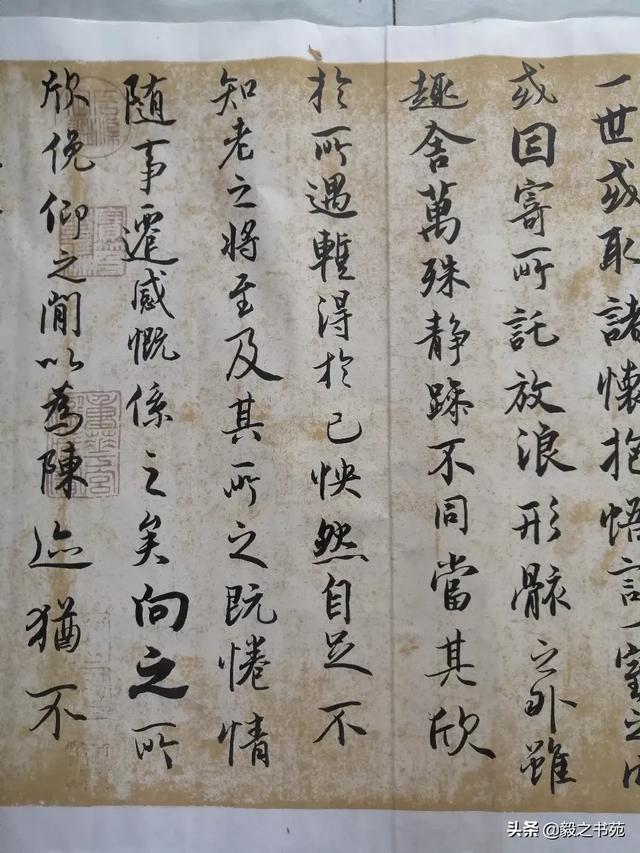 一世或取諸懷抱悟言一室之内
或因寄所託放浪形骸之外雖
趣舍萬殊静躁不同當其欣
於所遇暫得於己怏然自足不
知老之將至及其所之既惓情
随事遷感慨係之矣向之所
欣俛仰之閒以為陳迹猶不
头条 @毅之书苑